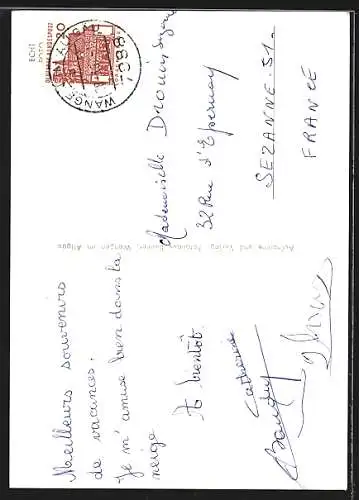 Meilleurs souvenirs
de vacances.
Je m'amuse bien dans la
neige
A bientôt
Catherine
ECHT
FOTO
DEUTSCHE BUNDESPOST
20
7988
WANGEN IM ALLGÄU
Mademoiselle Drouin
32 Rue d'Epernay
SEZANNE. 51.
FRANCE
Aufnahme und Verlag Wangen im Allgäu